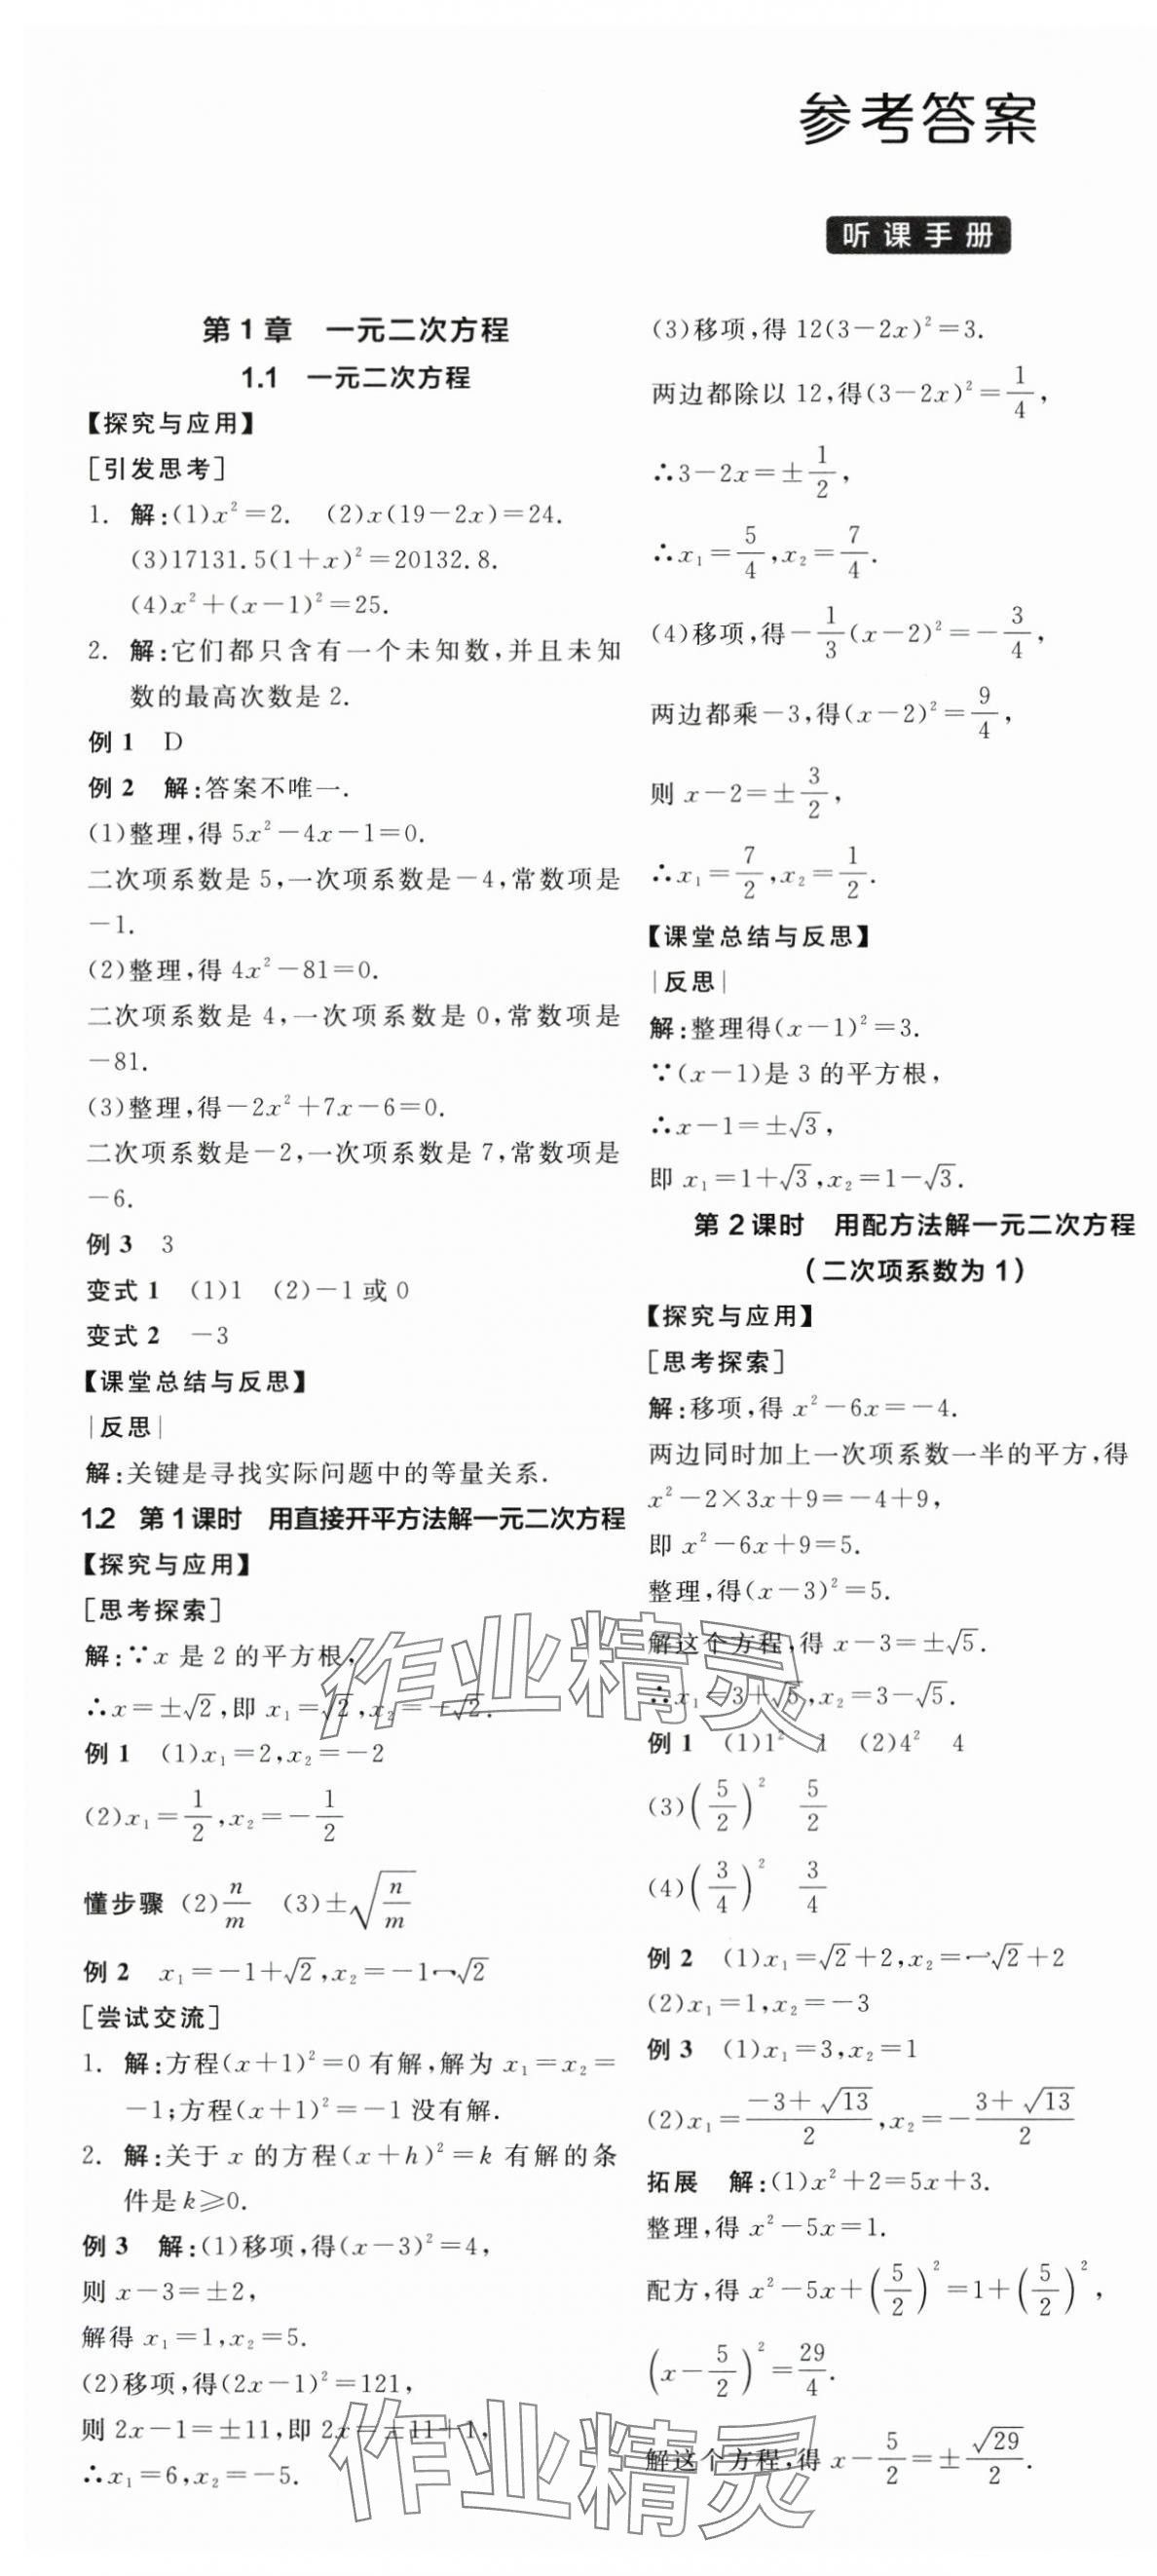 参考答案
听课手册
第1章 一元二次方程
1.1 一元二次方程
【探究与应用】
[引发思考]
1. 解:(1)x²=2. (2)x(19-2x)=24.
(3)17131.5(1+x)²=20132.8.
(4)x²+(x-1)²=25.
2. 解:它们都只含有一个未知数,并且未知
数的最高次数是2.
例1 D
例2 解:答案不唯一.
(1)整理,得5x²-4x-1=0.
二次项系数是5,一次项系数是-4,常数项是
-1.
(2)整理,得4x²-81=0.
二次项系数是4,一次项系数是0,常数项是
-81.
(3)整理,得-2x²+7x-6=0.
二次项系数是-2,一次项系数是7,常数项是
-6.
例3 3
变式1 (1)1 (2)-1或0
变式2 -3
【课堂总结与反思】
|反思|
解:关键是寻找实际问题中的等量关系.
1.2 第1课时 用直接开平方法解一元二次方程
【探究与应用】
[思考探索]
解:∵x是2的平方根,
∴x=±√2,即x₁=√2,x₂=-√2.
例1 (1)x₁=2,x₂=-2
(2)x₁=1/2,x₂=-1/2
懂步骤 (2)n/m (3)±√(n/m)
例2 x₁=-1+√2,x₂=-1-√2
[尝试交流]
1. 解:方程(x+1)²=0有解,解为x₁=x₂=
-1;方程(x+1)²=-1没有解.
2. 解:关于x的方程(x+h)²=k有解的条
件是k≥0.
例3 解:(1)移项,得(x-3)²=4,
则x-3=±2,
解得x₁=1,x₂=5.
(2)移项,得(2x-1)²=121,
则2x-1=±11,即2x=±11+1,
∴x₁=6,x₂=-5.
(3)移项,得12(3-2x)²=3.
两边都除以12,得(3-2x)²=1/4,
∴3-2x=±1/2,
∴x₁=5/4,x₂=7/4.
(4)移项,得-1/3(x-2)²=-3/4,
两边都乘-3,得(x-2)²=9/4,
则x-2=±3/2,
∴x₁=7/2,x₂=1/2.
【课堂总结与反思】
|反思|
解:整理得(x-1)²=3.
∵(x-1)是3的平方根,
∴x-1=±√3,
即x₁=1+√3,x₂=1-√3.
第2课时 用配方法解一元二次方程
(二次项系数为1)
【探究与应用】
[思考探索]
解:移项,得x²-6x=-4.
两边同时加上一次项系数一半的平方,得
x²-2×3x+9=-4+9,
即x²-6x+9=5.
整理,得(x-3)²=5.
解这个方程,得x-3=±√5.
∴x₁=3+√5,x₂=3-√5.
例1 (1)1² 1 (2)4² 4
(3)(5/2)² 5/2
(4)(3/4)² 3/4
例2 (1)x₁=√2+2,x₂=-√2+2
(2)x₁=1,x₂=-3
例3 (1)x₁=3,x₂=1
(2)x₁=(-3+√13)/2,x₂=-(3+√13)/2
拓展 解:(1)x²+2=5x+3.
整理,得x²-5x=1.
配方,得x²-5x+(5/2)²=1+(5/2)²,
(x-5/2)²=29/4.
解这个方程,得x-5/2=±√29/2.
作业精灵
作业精灵